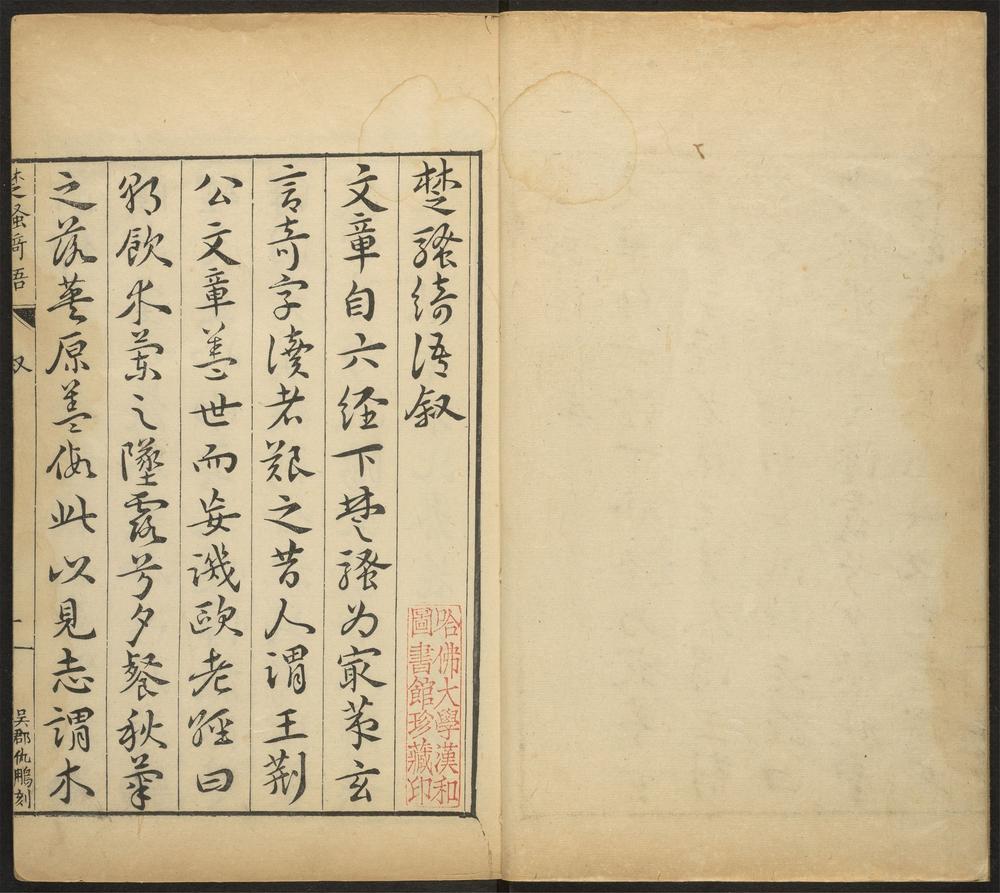 楚騷綺語叙
文章自六經下楚騷為寂䒾玄
言奇字讀者艱之昔人謂王荆
公文章盖世而妄譏歐老經曰
朝飲木蘭之墜露兮夕餐秋菊
之落英原盖假此以見志謂木
楚騷奇吾
叙
一
吳郡仇鵬刻
哈佛大學漢和
圖書館珍藏印